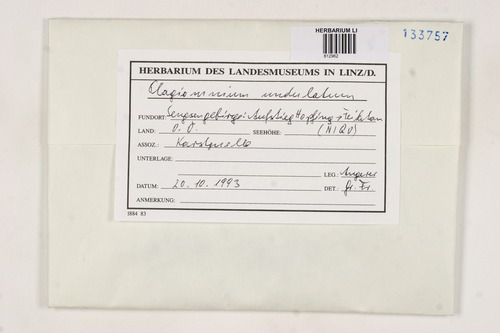 HERBARIUM LI
812962
133757
HERBARIUM DES LANDESMUSEUMS IN LINZ/D.
Plagiomnium undulatum
FUNDORT: Sengsengebirge: Aufstieg Hopfing
LAND: O.Ö. SEEHÖHE: (N1QD)
ASSOZ.: Karstquelle
UNTERLAGE:
LEG.: Angerer
DATUM: 20.10.1993 DET.: Gr. Fr.
ANMERKUNG:
1884 83